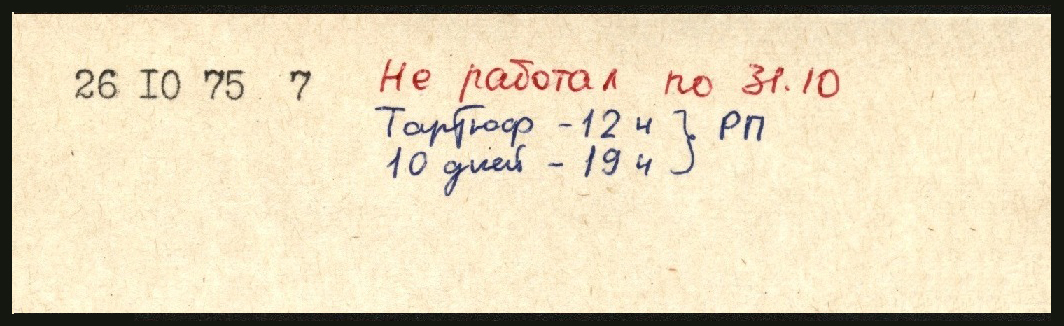 26 IO 75 7 Не работал по 31.10
Тартюф - 12 ч } РП
10 дней - 19 ч